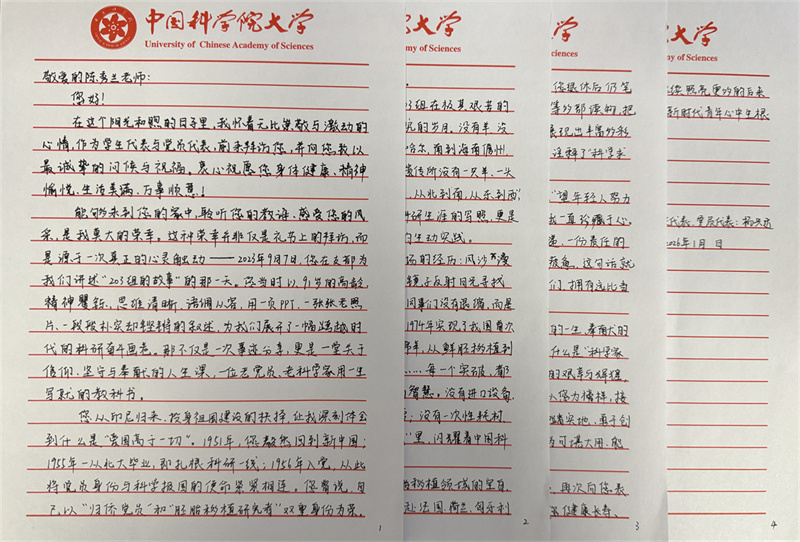 中国科学院大学
University of Chinese Academy of Sciences
敬爱的陈秀兰老师:
您好!
在这个阳光和煦的日子里,我怀着无比崇敬与激动的
心情,作为学生代表与党员代表,前来拜访您,并向您致以
最诚挚的问候与祝福。衷心祝愿您身体健康、精神
愉悦、生活美满、万事顺意!
能够来到您的家中,聆听您的教诲、感受您的风
采,是我莫大的荣幸。这种荣幸并非仅是礼节上的拜访,而
是源于一次真正的心灵触动——2023年9月7日,您在支部为
我们讲述“203组的故事”的那一天。您当时以91岁的高龄
精神矍铄、思维清晰、语调从容,用一页PPT、一张张老照
片、一段段朴实却铿锵的叙述,为我们展开了一幅跨越时
代的科研奋斗画卷。那不仅是一次事迹分享,更是一堂关于
信仰、坚守与奉献的人生课,一位老党员、老科学家用一生
写就的教科书。
您从印尼归来,投身祖国建设的抉择,让我深刻体会
到什么是“爱国高于一切”。1951年,您毅然回到新中国;
1955年一从北大毕业,即扎根科研一线;1956年入党,从此
将党员身份与科学报国的使命紧紧相连。您曾说,自
己以“归侨党员”和“胚胎移植研究者”双重身份为荣,
1
大学
my of Sciences
。
03组在极其艰苦的
究的岁月。没有羊 没
哈尔,南到海南儋州
遗传所没有一只羊、一头
,从北到南,从东到西”,
科研生涯的写照,更是
的生动实践。
场的经历:风沙
镜子反射日光寻找
同事们没有退缩,而是
1974年实现了我国首次
移,从鲜胚移植到
……每一个突破,都
智慧。没有进口设备,
;没有一次性耗材,
”里,闪耀着中国科
移植领域的坚自
赴法国、荷兰、匈牙利
2
大学
Sciences
您退休后仍笔
等多部译的,把
展现出丰富的移
诠释了“科学家
“望年轻人努力
我一直珍藏于心。
递、一份责任的
预备。这句话就
们,拥有远比当
的一生,奉献的
什么是“科学家
的艰辛与辉煌。
以您为榜样,接
踏实地、勇于创
为可堪大用、能
,再次向您表
您健康长寿、
3
大学
y of Sciences
续照亮更多的后来
新时代青年心中生根
代表、党员代表:
2026年1月 日
4